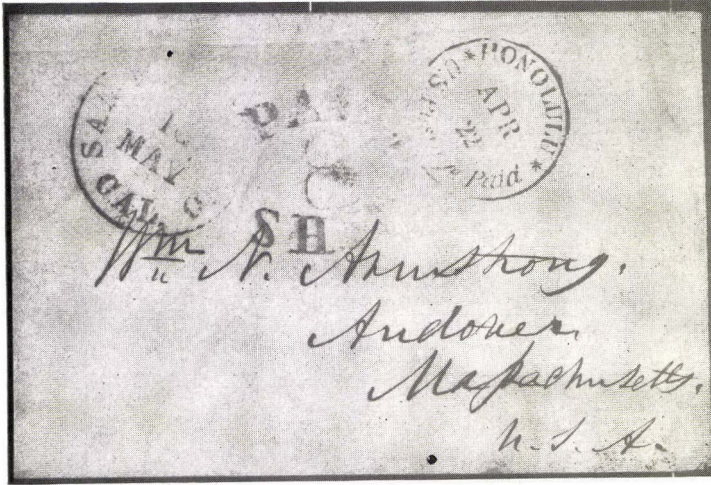 SAN
MAY
CAL.
PA
SH
★ HONOLULU ★
U.S. Postage Paid
APR
22
Wm N. Armstrong.
Andover
Massachusetts.
U.S.A.